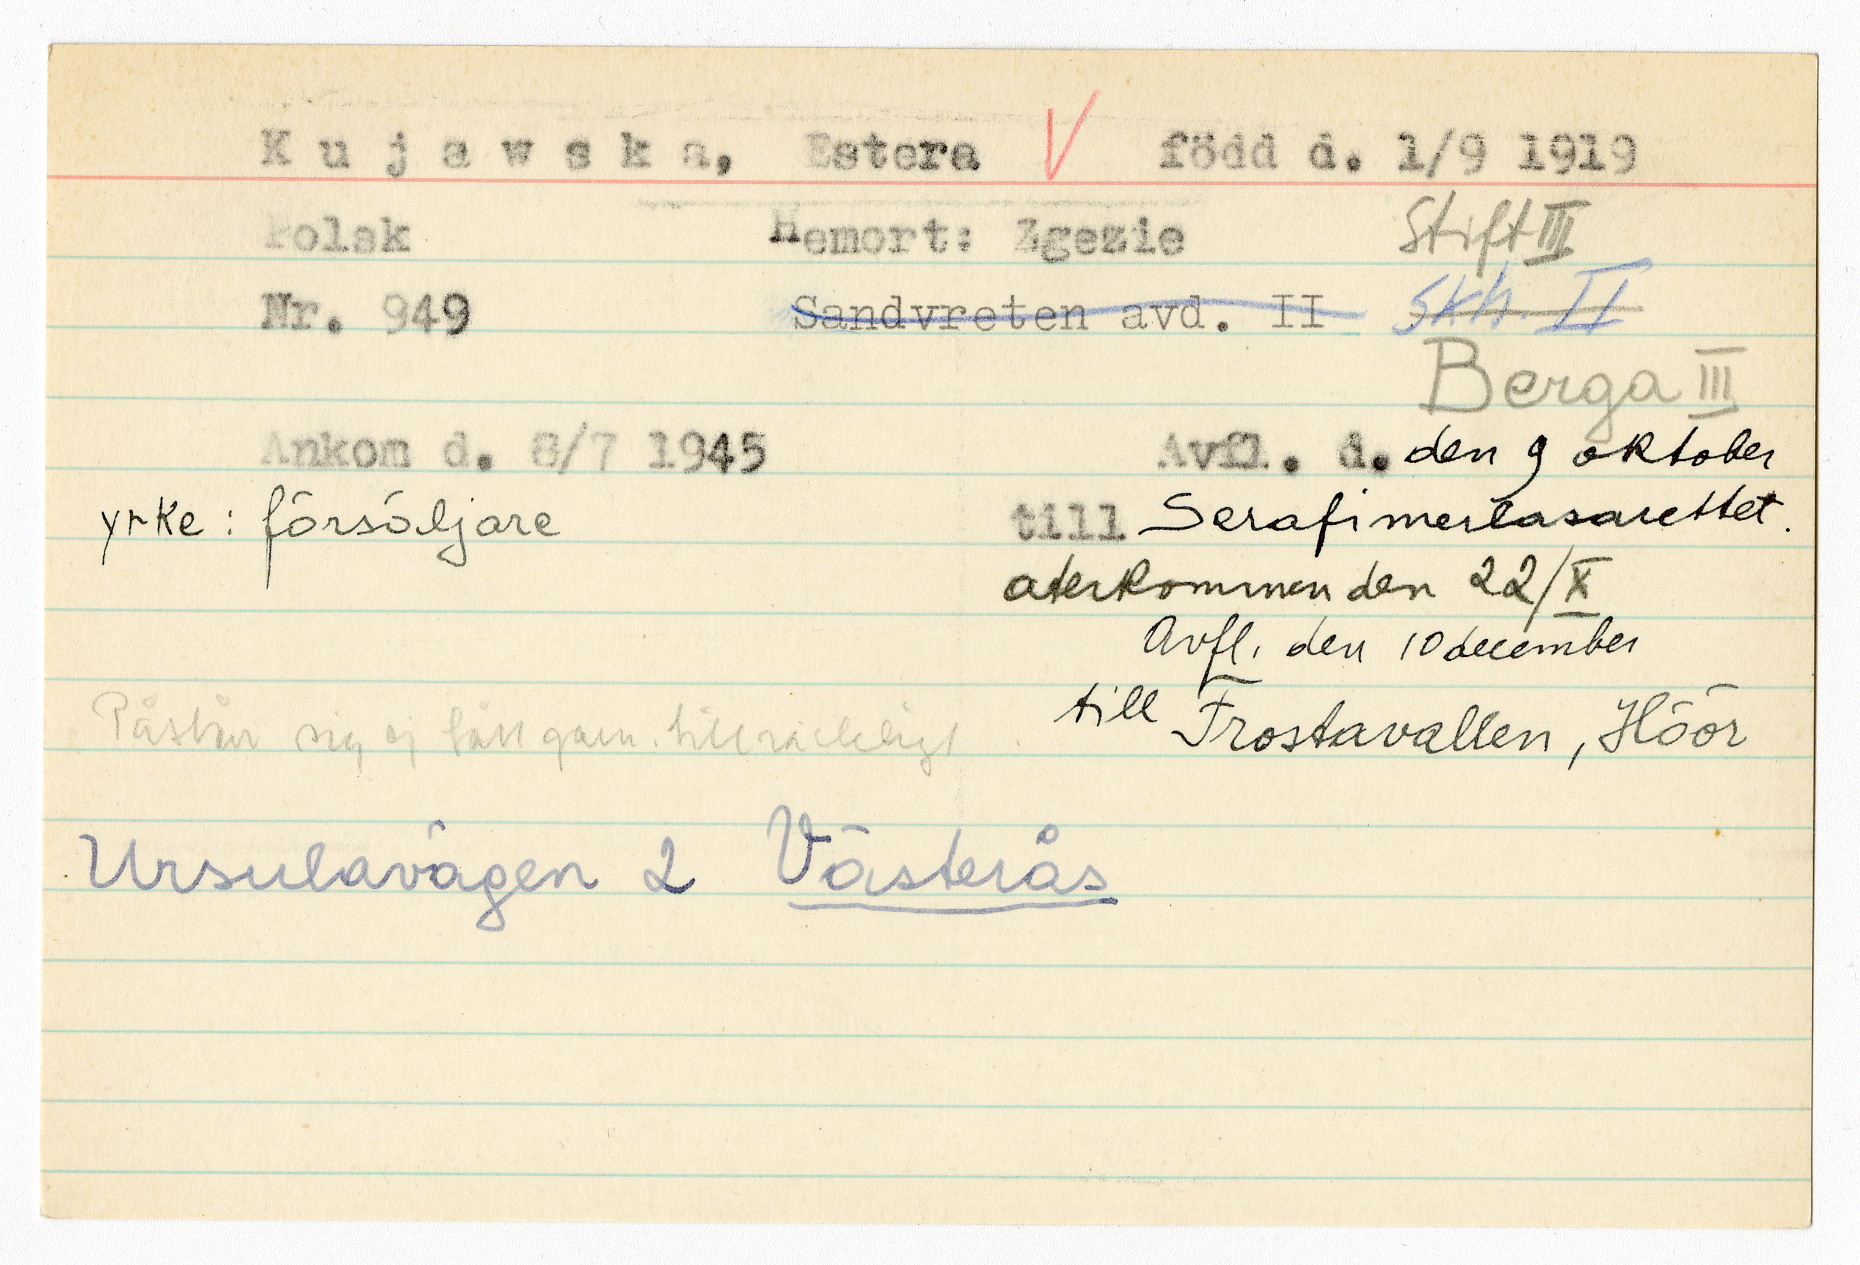 Kujawska, Estera V född d. 1/9 1919
Polsk Hemort: Zgezie Stift III
Nr. 949 Sandvreten avd. II Skh. II
Berga III
Ankom d. 8/7 1945 Avfl. d. den 9 oktober
yrke: försäljare till Serafimerlasarettet.
aterkommen den 22/X
Avfl. den 10 december
till Frostavallen, Höör
Påstår sig ej fått garn. tillräckligt
Ursulavägen 2 Västerås